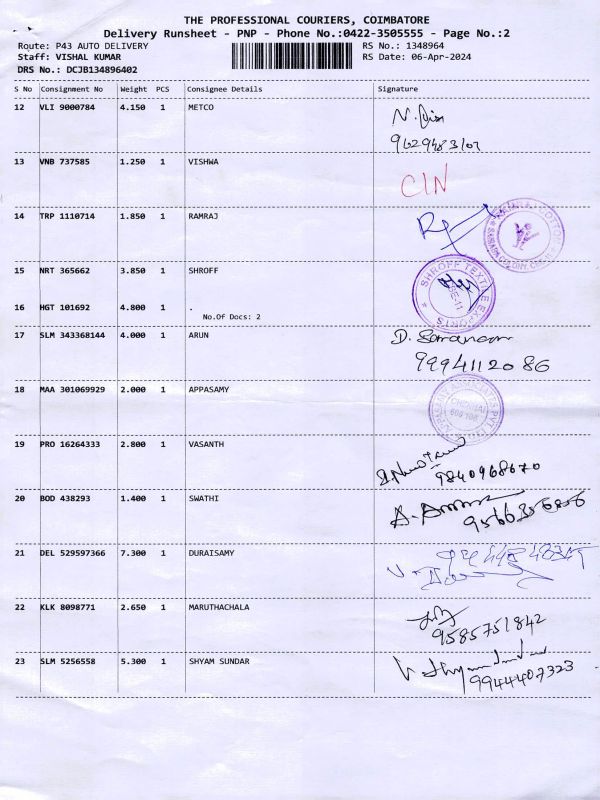 THE PROFESSIONAL COURIERS, COIMBATORE
Delivery Runsheet - PNP - Phone No.:0422-3505555 - Page No.:2
Route: P43 AUTO DELIVERY RS No.: 1348964
Staff: VISHAL KUMAR RS Date: 06-Apr-2024
DRS No.: DCJB134896402
S No Consignment No Weight PCS Consignee Details Signature
12 VLI 9000784 4.150 1 METCO
13 VNB 737585 1.250 1 VISHWA
CIN
14 TRP 1110714 1.850 1 RAMRAJ
15 NRT 365662 3.850 1 SHROFF
SHROFF TEXTILE EXPORTS
16 HGT 101692 4.800 1 .
No.Of Docs: 2
17 SLM 343368144 4.000 1 ARUN
9994112086
18 MAA 301069929 2.000 1 APPASAMY
CHENNAI
19 PRO 16264333 2.800 1 VASANTH
9840968670
20 BOD 438293 1.400 1 SWATHI
21 DEL 529597366 7.300 1 DURAISAMY
22 KLK 8098771 2.650 1 MARUTHACHALA
9585751842
23 SLM 5256558 5.300 1 SHYAM SUNDAR
9944407323